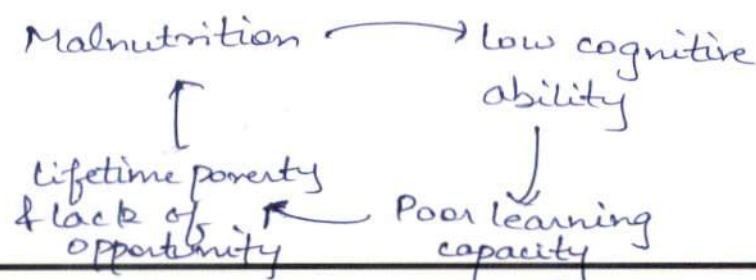 Malnutrition
Low cognitive
ability
Poor learning
capacity
Lifetime poverty
& lack of
opportunity